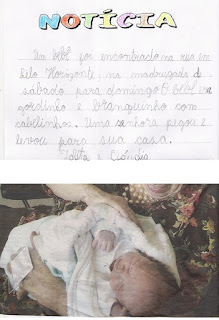 NOTÍCIA
Um bebê foi encontrado na rua em
Belo Horizonte, na madrugada de
sábado para domingo. O bebê era
gordinho e branquinho com
cabelinhos. Uma senhora pegou e
levou para sua casa.
e Cláudia